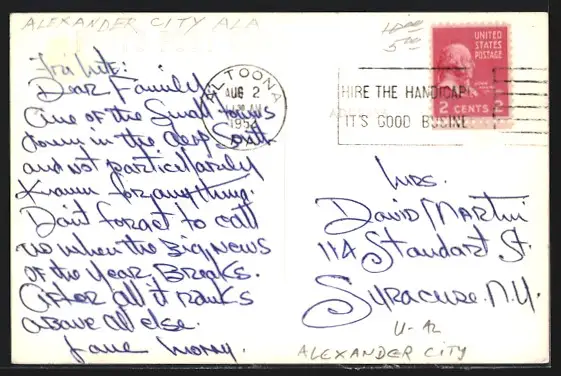 ALEXANDER CITY ALA
Fri nite:
Dear Family
One of the small towns
down in the deep South
and not particularly
known for anything.
Don't forget to call
us when the BIG NEWS
of the Year Breaks.
After all it ranks
above all else.
Love
ALTOONA
AUG 2
PA
HIRE THE HANDICAP
IT'S GOOD BUSINE
UNITED
STATES
POSTAGE
2 CENTS 2
5.00
Mrs.
David Martin
114 Standart St.
Syracuse. N.Y.
U-AL
ALEXANDER CITY